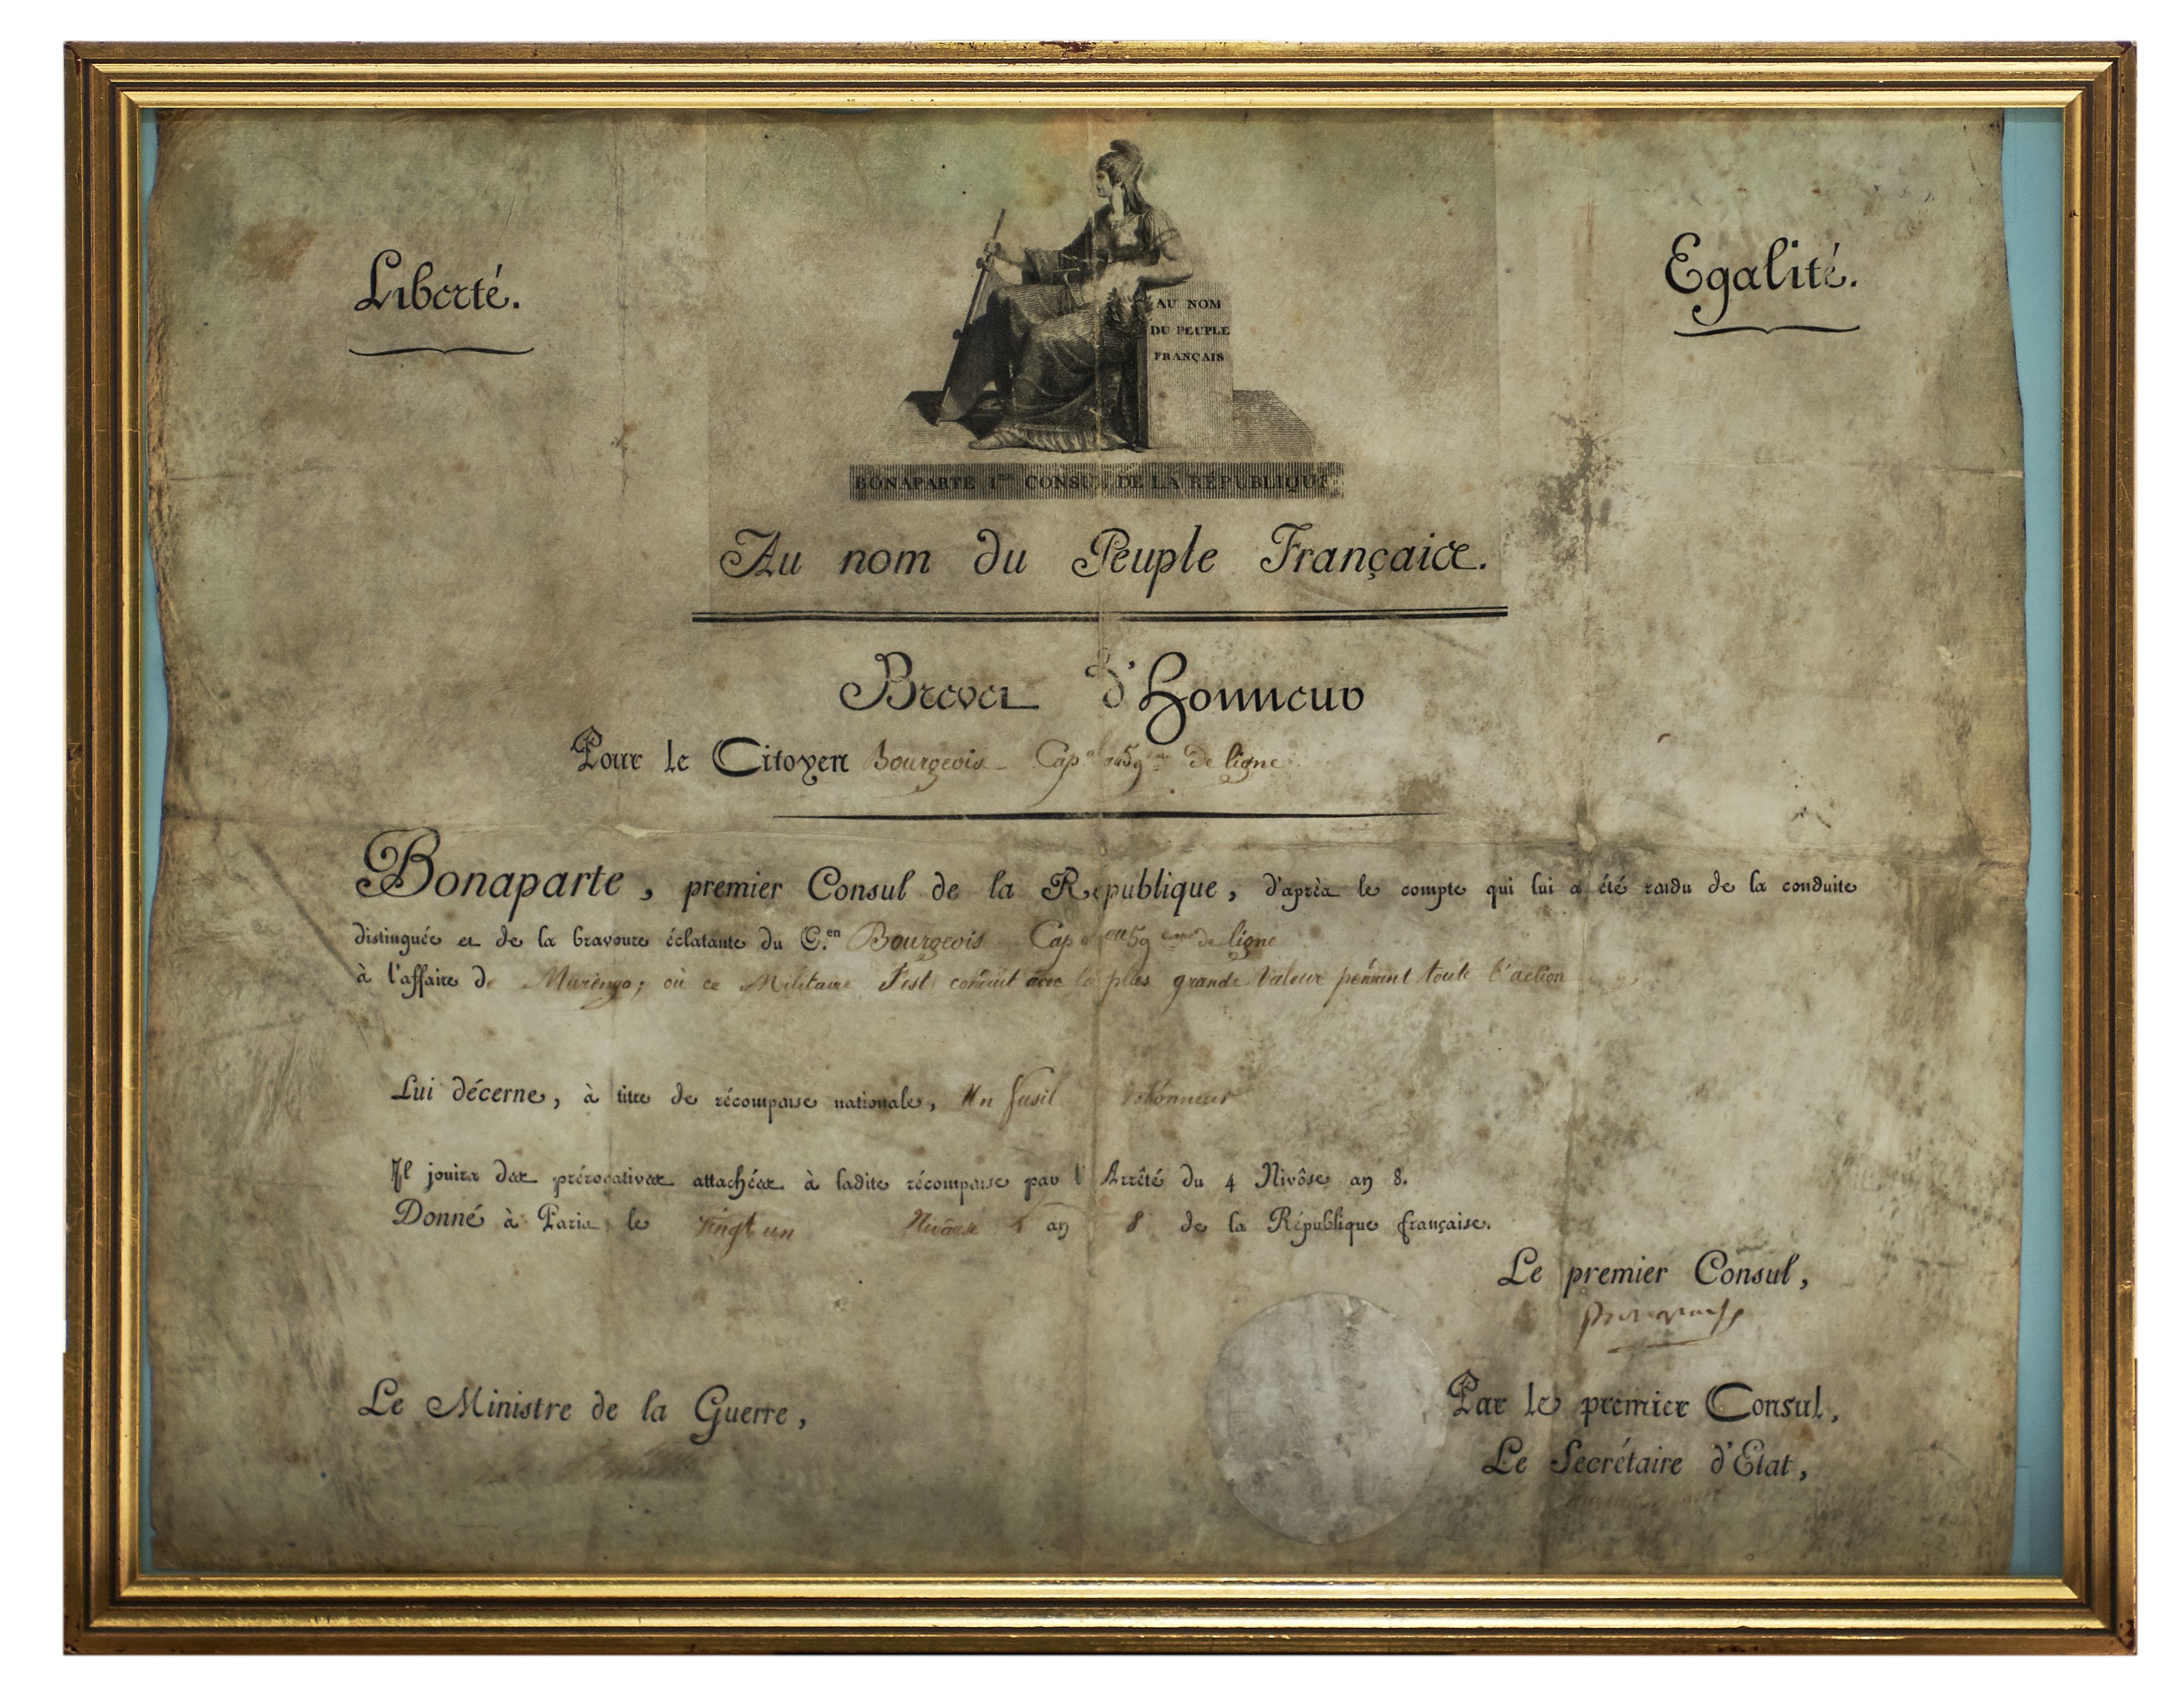 Liberté.
Egalité.
AU NOM
DU PEUPLE
FRANÇAIS
BONAPARTE 1er CONSUL DE LA REPUBLIQUE
Au nom du Peuple Français.
Brevet d'Honneur
Pour le Citoyen Bourgeois Cap al au 59 eme de ligne
Bonaparte, premier Consul de la République, d'après le compte qui lui a été rendu de la conduite
distinguée et de la bravoure éclatante du C.en Bourgeois Cap al au 59 eme de ligne
à l'affaire de Marengo; où ce Militaire s'est conduit avec la plus grande valeur pendant toute l'action
Lui décerne, à titre de récompense nationale, Un fusil d'honneur
Il jouira des prérogatives attachées à ladite récompense par l'Arrêté du 4 Nivôse an 8.
Donné à Paris le Vingt un an 8 de la République française.
Le premier Consul,
Bonaparte
Le Ministre de la Guerre,
Par le premier Consul,
Le Secrétaire d'Etat,